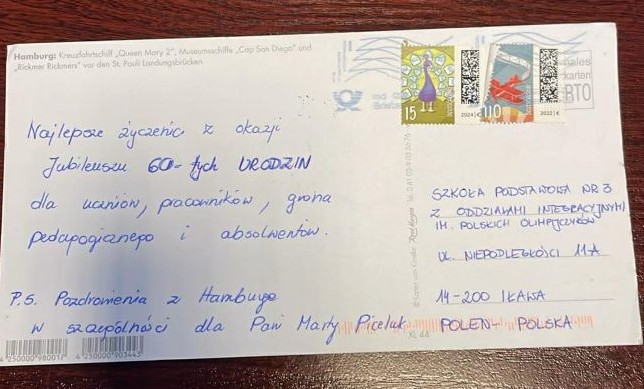 Hamburg: Kreuzfahrtschiff „Queen Mary 2", Museumsschiffe „Cap San Diego" und
„Rickmer Rickmers" vor den St. Pauli Landungsbrücken
15
2024 | €
110
2022 | €
BTO
Najlepsze życzenia z okazji
Jubileuszu 60-tych URODZIN
dla uczniów, pracowników, grona
pedagogicznego i absolwentów.
P.S. Pozdrowienia z Hamburga
w szczególności dla Pani Marty Piceluk
SZKOŁA PODSTAWOWA NR 3
Z ODDZIAŁAMI INTEGRACYJNYMI
IM. POLSKICH OLIMPIJCZYKÓW
UL. NIEPODLEGŁOŚCI 11A
14-200 IŁAWA
POLEN - POLSKA
XL 44
4 250000 980017
4 250000 903443